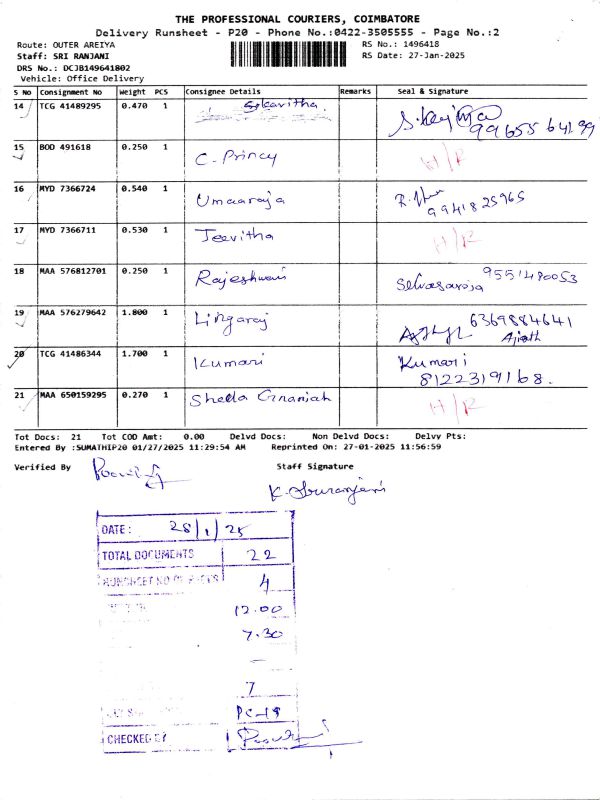 THE PROFESSIONAL COURIERS, COIMBATORE
Delivery Runsheet - P20 - Phone No.:0422-3505555 - Page No.:2
Route: OUTER AREIYA RS No.: 1496418
Staff: SRI RANJANI RS Date: 27-Jan-2025
DRS No.: DCJB149641802
Vehicle: Office Delivery
S No Consignment No Weight PCS Consignee Details Remarks Seal & Signature
14 TCG 41489295 0.470 1
99655 64199
15 BOD 491618 0.250 1 C. Princy H/R
16 MYD 7366724 0.540 1 Umaaraja
9941825965
17 MYD 7366711 0.530 1 Jeevitha H/R
18 MAA 576812701 0.250 1 Rajeshwari Selvasaroja 9551480053
19 MAA 576279642 1.800 1 Lingaraj 6369884641
Ajith
20 TCG 41486344 1.700 1 Kumari Kumari
8122319168.
21 MAA 650159295 0.270 1 Sheela Gnaniah H/R
Tot Docs: 21 Tot COD Amt: 0.00 Delvd Docs: Non Delvd Docs: Delvy Pts:
Entered By :SUMATHIP20 01/27/2025 11:29:54 AM Reprinted On: 27-01-2025 11:56:59
Verified By Staff Signature
DATE: 28/1/25
TOTAL DOCUMENTS 22
RUNSHEET NO OF PAGES 4
12.00
7.30
7
PC-18
CHECKED BY